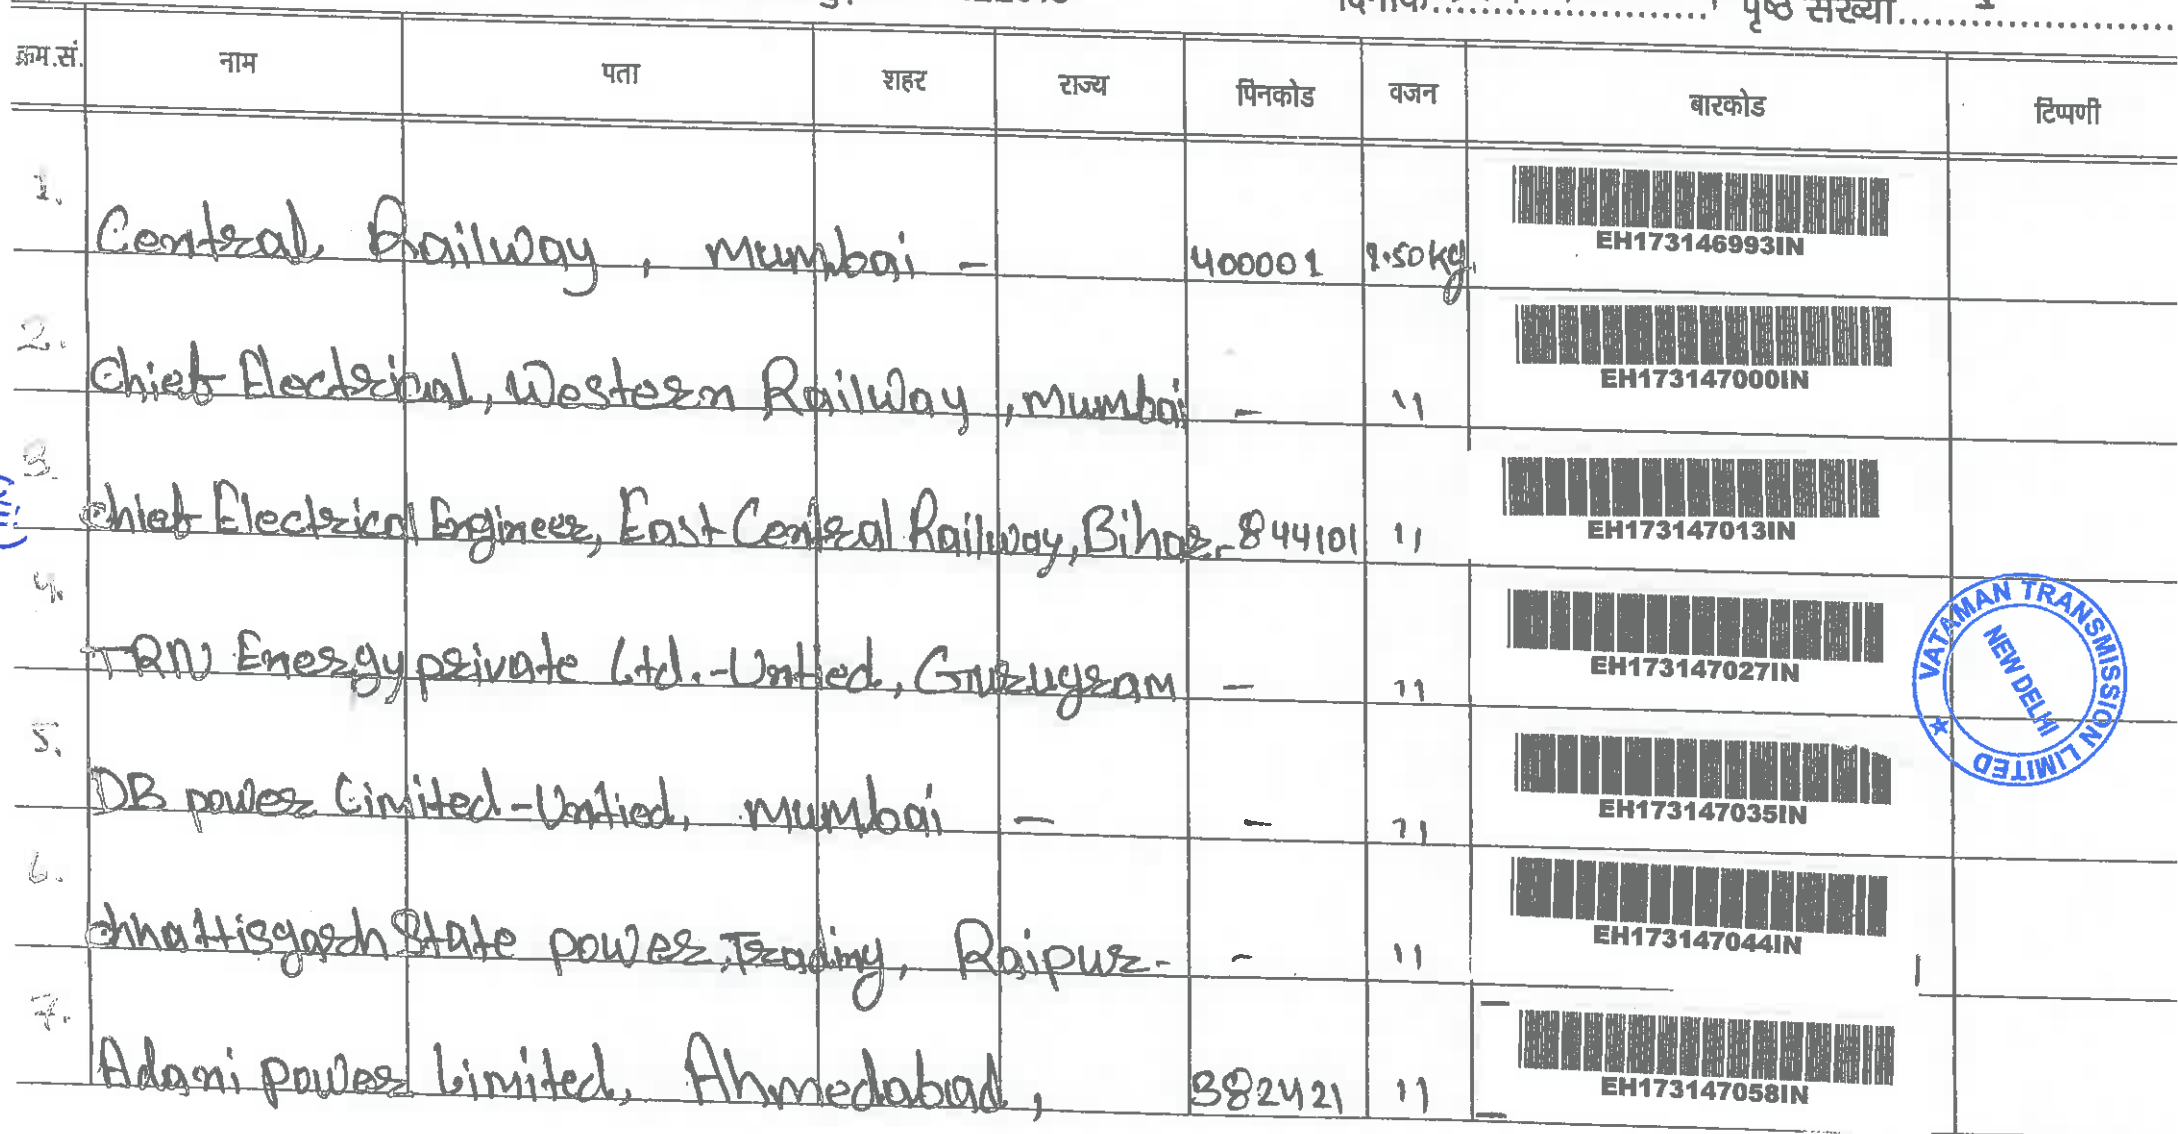 दिनांक........................ पृष्ठ संख्या........................
क्रम.सं. नाम पता शहर राज्य पिनकोड वजन बारकोड टिप्पणी
1. Central Railway, mumbai - 400001 2.50 kg. EH173146993IN
2. Chief Electrical, Western Railway, mumbai - " EH173147000IN
3. Chief Electrical Engineer, East Central Railway, Bihar - 844101 " EH173147013IN
4. TRN Energy private Ltd.-Untied, Gurugram - " EH173147027IN
VATAMAN TRANSMISSION LIMITED
NEW DELHI
5. DB power Limited-Untied, mumbai - - " EH173147035IN
6. Chhattisgarh State power Trading, Raipur - - " EH173147044IN
7. Adani power Limited, Ahmedabad, 382421 " EH173147058IN